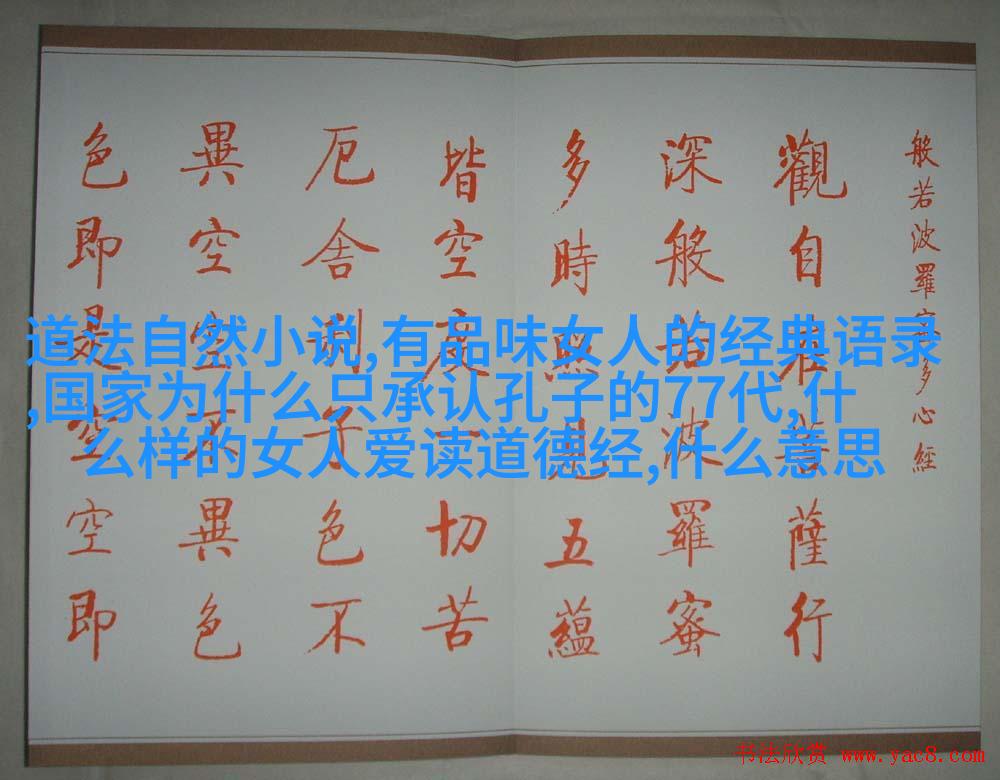 般若波羅多心經
觀自在菩薩行
深般若波羅蜜
多時照見五蘊
皆空度一切苦
厄舍利子色不
異空空不異色
色即是空空即
道法自然小说,有品味女人的经典语录
,国家为什么只承认孔子的77代,什
么样的女人爱读道德经,什么意思
书法欣赏 www.yac8.com